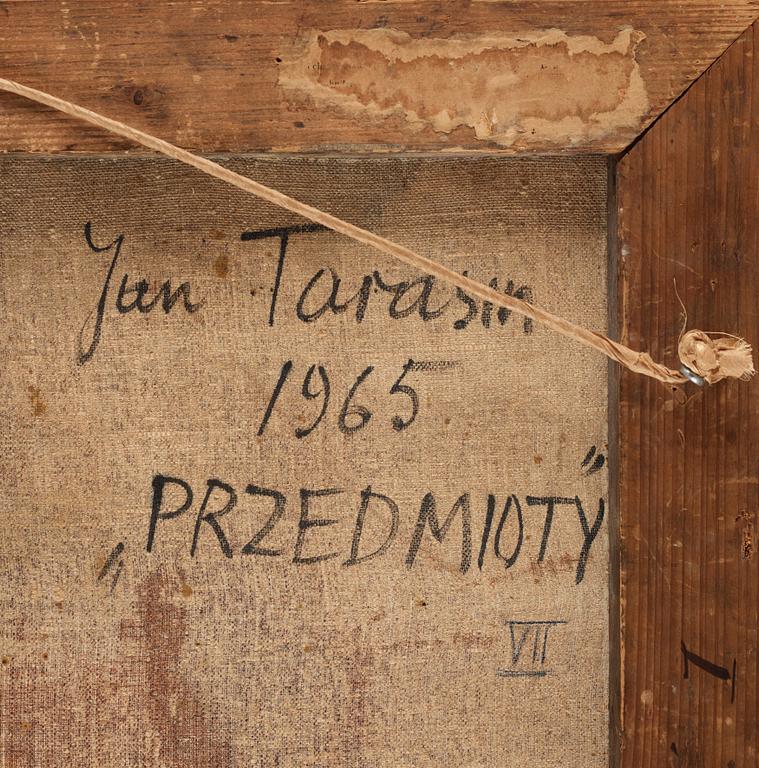 Jan Tarasin
1965
„PRZEDMIOTY”
VII